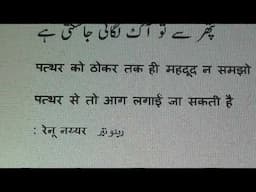 پتھر سے تو آگ لگائی جا سکتی ہے
पत्थर को ठोकर तक ही महदूद न समझो
पत्थर से तो आग लगाई जा सकती है
: रेनू नय्यर رینو نیر